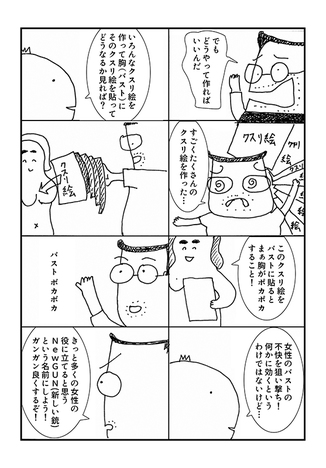 でも
どうやって作れば
いいんだ
いろんなクスリ絵を
作って胸(バスト)に
そのクスリ絵を貼って
どうなるか見れば?
クスリ絵
クスリ
絵
すごくたくさんの
クスリ絵を作った…
クスリ
絵
このクスリ絵を
バストに貼ると
まぁ胸がポカポカ
すること!
バストポカポカ
女性のバストの
不快を狙い撃ち!
何かに効くという
わけではないけど…
きっと多くの女性の
役に立てると思う
NewGUN(新しい銃)
という名前にしよう!
ガンガン良くするぞ!